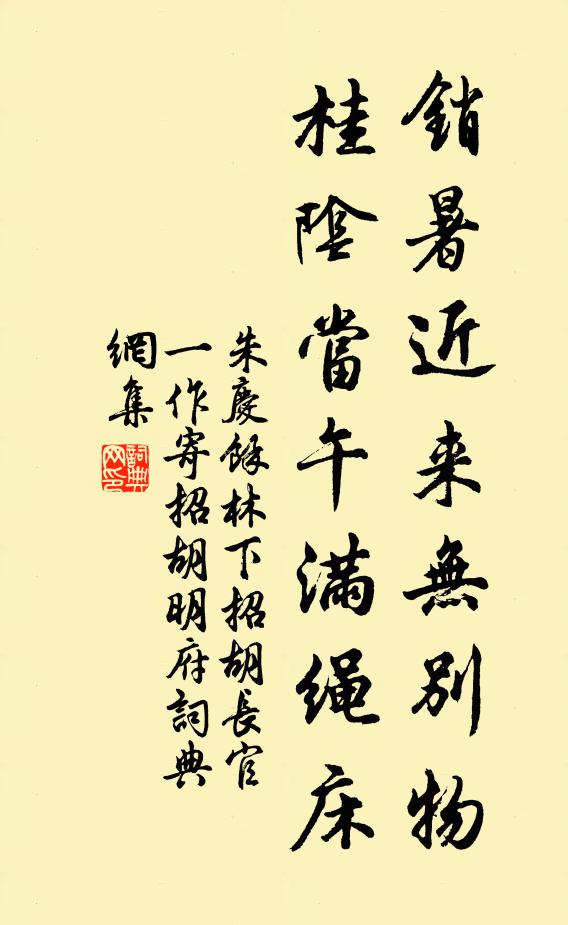 銷暑近来無別物
桂陰當午滿繩床
朱慶餘林下招胡長官
一作寄招胡明府詞典
網集
詞典
网印